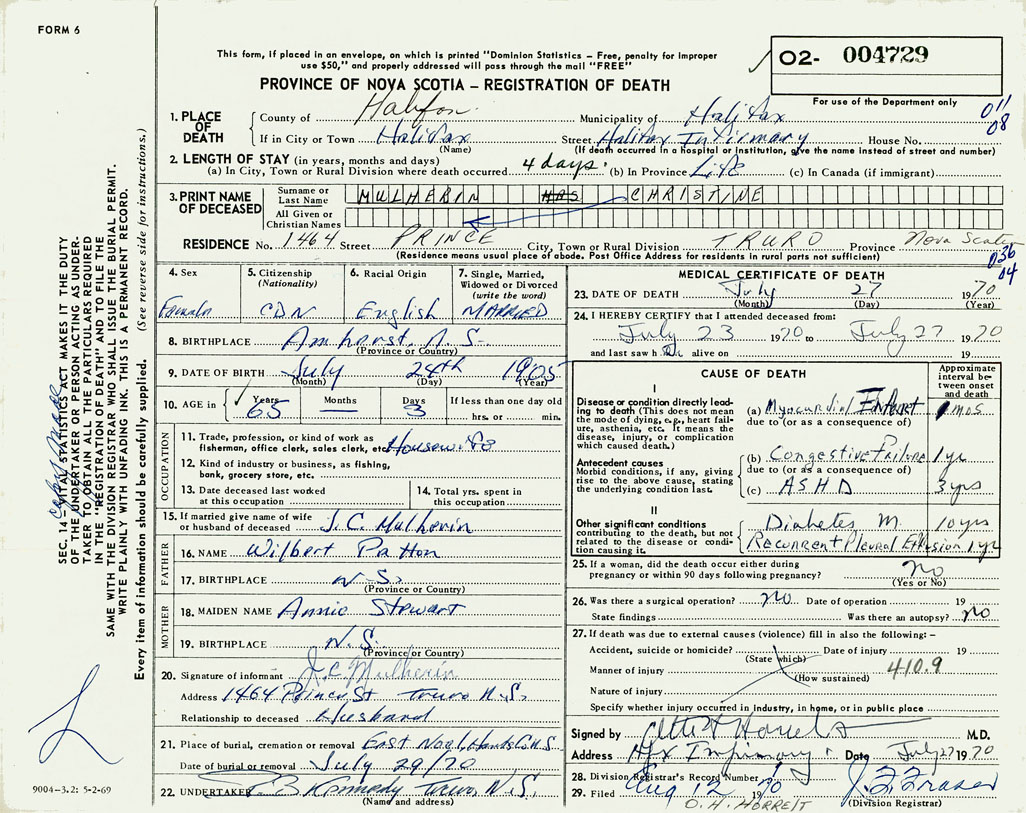 FORM 6
This form, if placed in an envelope, on which is printed "Dominion Statistics – Free, penalty for improper
use $50," and properly addressed will pass through the mail "FREE"
PROVINCE OF NOVA SCOTIA – REGISTRATION OF DEATH
O2- 004729
For use of the Department only
011
08
1. PLACE OF DEATH
County of Halifax Municipality of Halifax
If in City or Town Halifax Street Halifax Infirmary House No.
(Name) (If death occurred in a hospital or institution, give the name instead of street and number)
2. LENGTH OF STAY (in years, months and days)
(a) In City, Town or Rural Division where death occurred 4 days. (b) In Province Life (c) In Canada (if immigrant)
3. PRINT NAME OF DECEASED
Surname or Last Name MULHERIN MRS CHRISTINE
All Given or Christian Names
RESIDENCE No. 1464 Street PRINCE City, Town or Rural Division TRURO Province Nova Scotia
(Residence means usual place of abode. Post Office Address for residents in rural parts not sufficient)
036
04
4. Sex
Female
5. Citizenship (Nationality)
CDN
6. Racial Origin
English
7. Single, Married, Widowed or Divorced (write the word)
MARRIED
8. BIRTHPLACE Amherst, N.S.
(Province or Country)
9. DATE OF BIRTH July 24th 1905
(Month) (Day) (Year)
10. AGE in Years Months Days If less than one day old
65 — 3 hrs. or min.
OCCUPATION
11. Trade, profession, or kind of work as
fisherman, office clerk, sales clerk, etc. Housewife
12. Kind of industry or business, as fishing,
bank, grocery store, etc.
13. Date deceased last worked
at this occupation
14. Total yrs. spent in
this occupation
15. If married give name of wife
or husband of deceased J.C. Mulherin
FATHER
16. NAME Wilbert Patton
17. BIRTHPLACE N.S.
(Province or Country)
MOTHER
18. MAIDEN NAME Annie Stewart
19. BIRTHPLACE N.S.
(Province or Country)
20. Signature of informant J.C. Mulherin
Address 1464 Prince St Truro N.S.
Relationship to deceased Husband
21. Place of burial, cremation or removal East Noel, Hants Co. N.S.
Date of burial or removal July 29/70
22. UNDERTAKER Kennedy Truro, N.S.
(Name and address)
MEDICAL CERTIFICATE OF DEATH
23. DATE OF DEATH July 27 1970
(Month) (Day) (Year)
24. I HEREBY CERTIFY that I attended deceased from:
July 23 1970 to July 27 1970
and last saw h er alive on 19
CAUSE OF DEATH
Approximate interval between onset and death
I
Disease or condition directly leading to death (This does not mean the mode of dying, e.g., heart failure, asthenia, etc. It means the disease, injury, or complication which caused death.)
(a) Myocardial Infarct mos
due to (or as a consequence of)
Antecedent causes
Morbid conditions, if any, giving rise to the above cause, stating the underlying condition last.
(b) Congestive Failure 1 yr
due to (or as a consequence of)
(c) ASHD 3 yrs
II
Other significant conditions
contributing to the death, but not related to the disease or condition causing it.
Diabetes M 10 yrs
Recurrent Pleural Effusion 1 yr
25. If a woman, did the death occur either during
pregnancy or within 90 days following pregnancy? No
(Yes or No)
26. Was there a surgical operation? No Date of operation 19
State findings Was there an autopsy? No
27. If death was due to external causes (violence) fill in also the following: –
Accident, suicide or homicide? Date of injury 19
(State which)
Manner of injury 410.9
(How sustained)
Nature of injury
Specify whether injury occurred in industry, in home, or in public place
Signed by M.D.
Address Hfx Infirmary Date July 27 1970
28. Division Registrar's Record Number
29. Filed Aug 12 1970 J. F. Fraser
O. H. HORRELT (Division Registrar)
SEC. 14 – VITAL STATISTICS ACT MAKES IT THE DUTY
OF THE UNDERTAKER OR PERSON ACTING AS UNDERTAKER
TO OBTAIN ALL THE PARTICULARS REQUIRED
IN THE "REGISTRATION OF DEATH" AND TO FILE THE
SAME WITH THE DIVISION REGISTRAR WHO SHALL ISSUE THE BURIAL PERMIT.
WRITE PLAINLY WITH UNFADING INK. THIS IS A PERMANENT RECORD.
Every item of information should be carefully supplied. (See reverse side for instructions.)
9004–3.2: 5-2-69